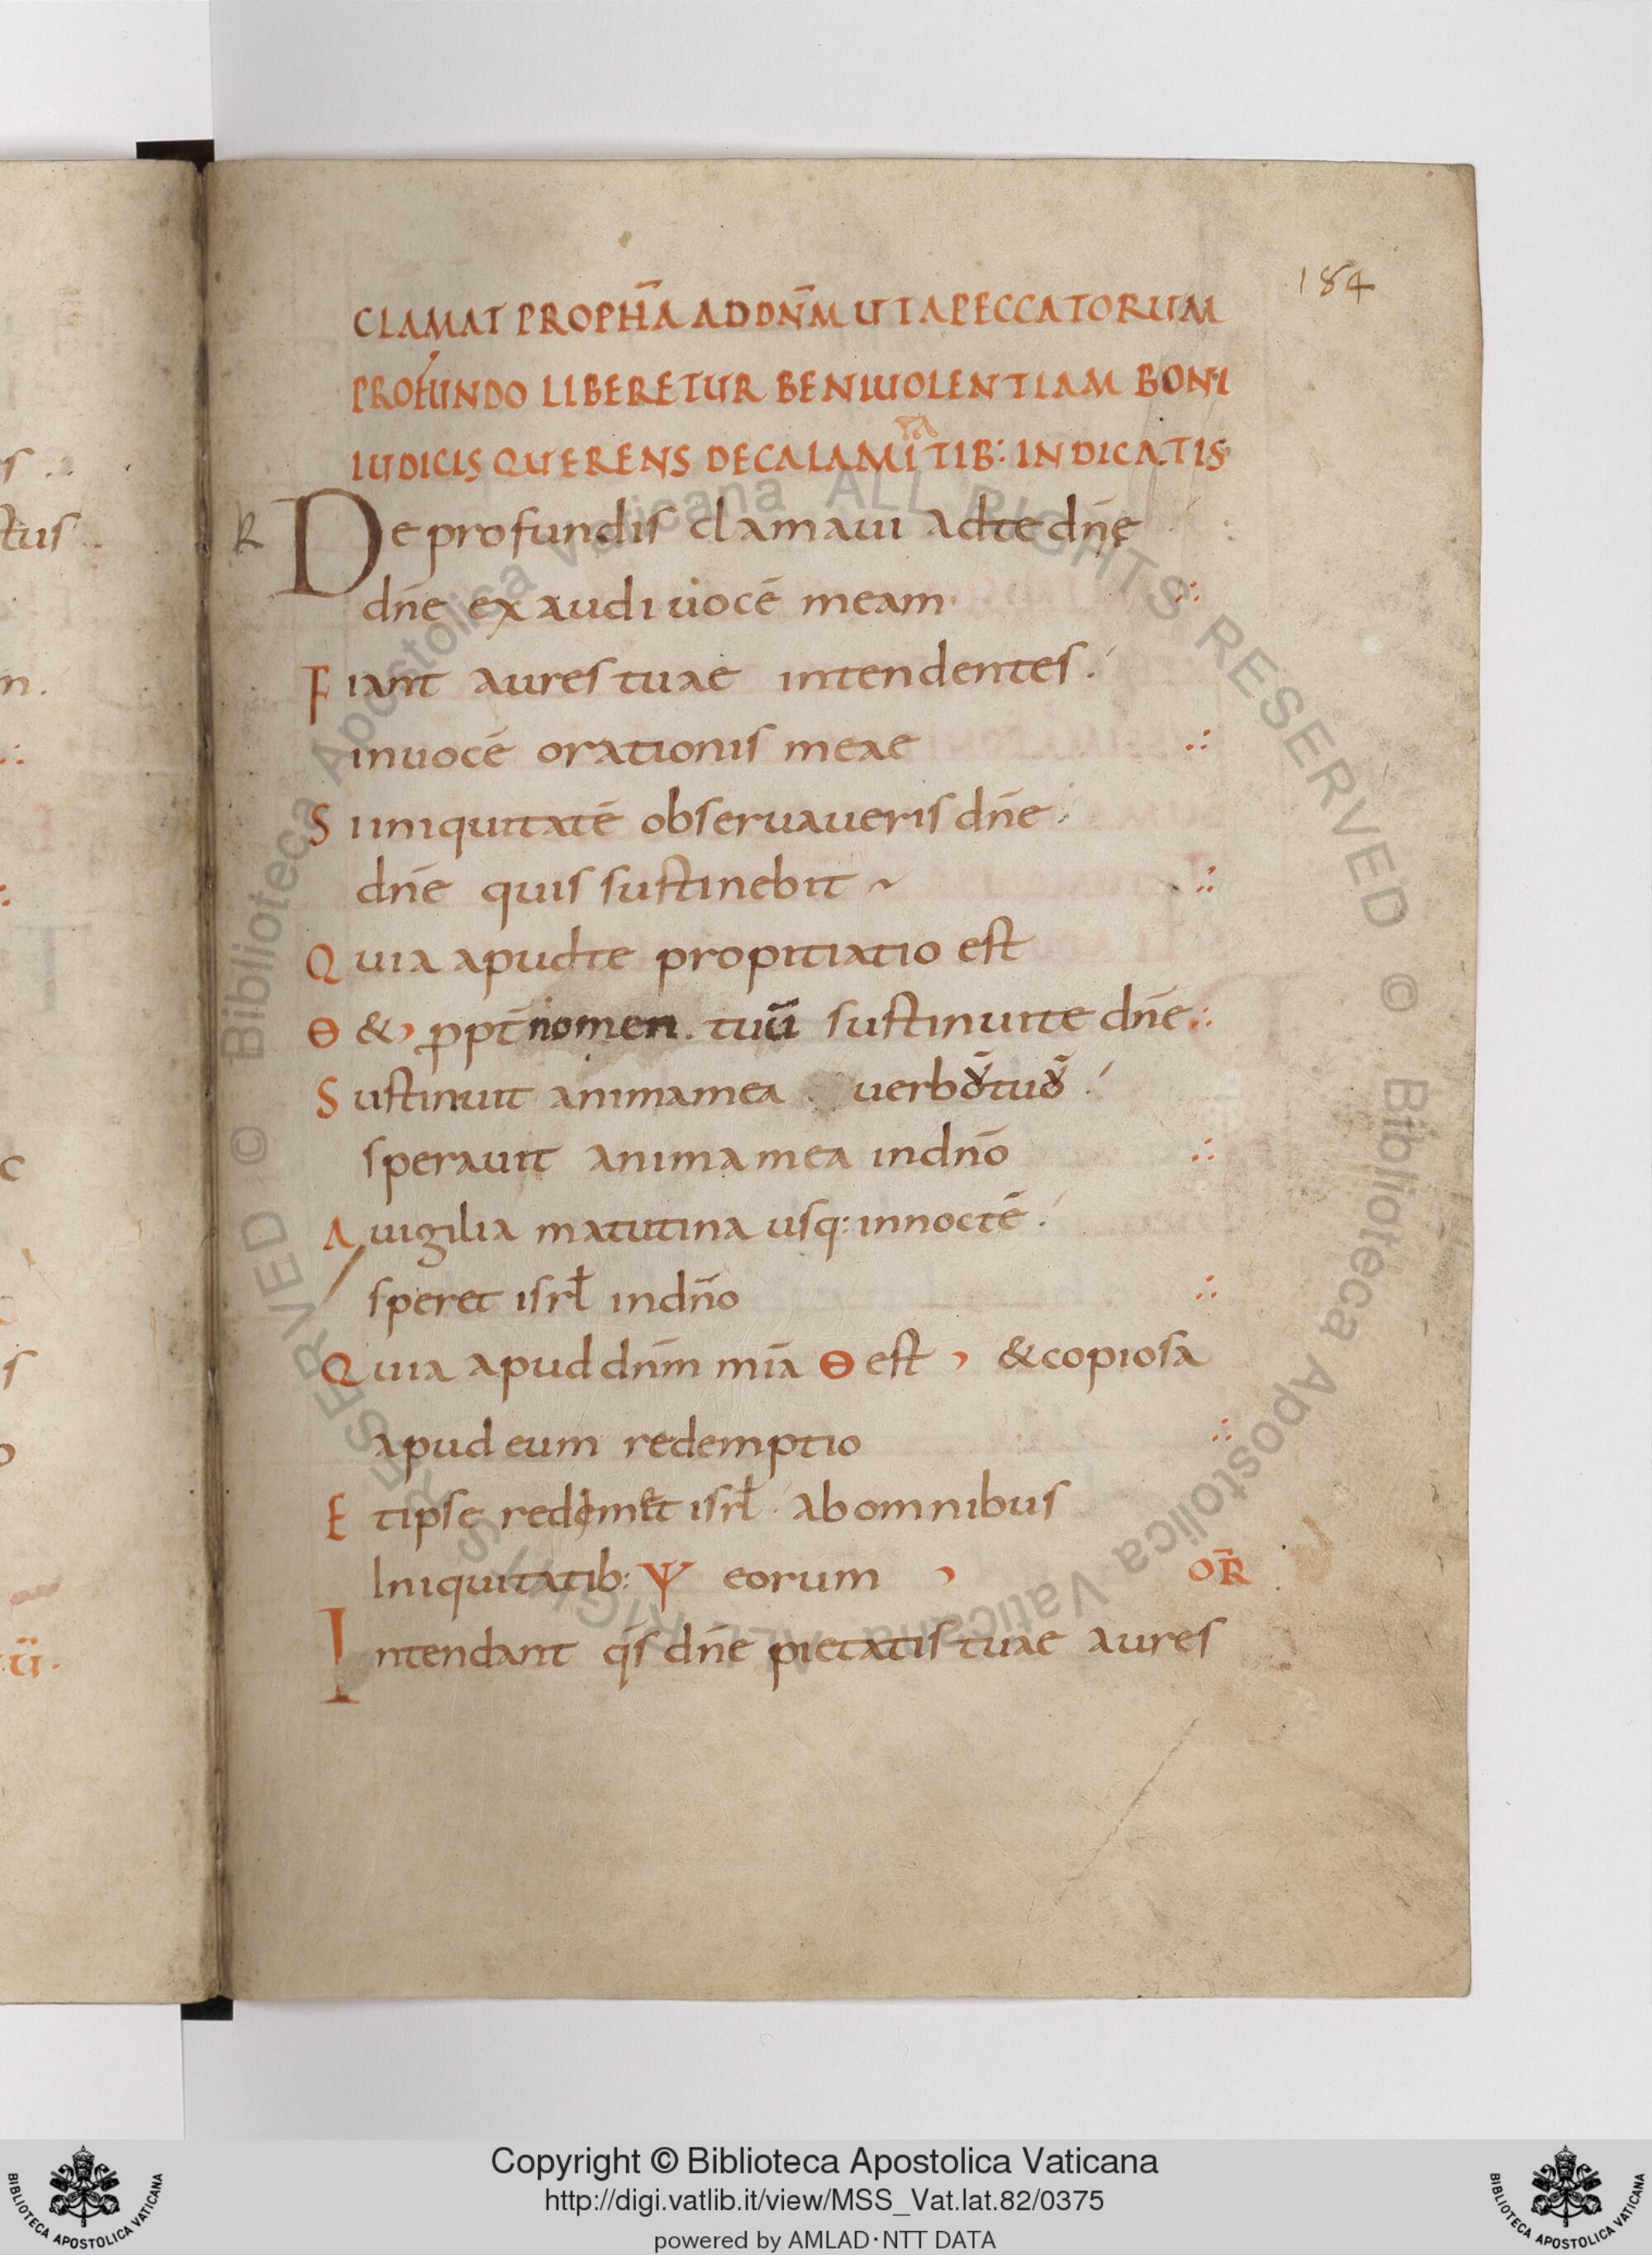 184
CLAMAT PROPHA̅ AD DN̅M UT A PECCATORUM
PROFUNDO LIBERETUR BENIUOLENTIAM BONI
IUDICIS QUERENS DE CALAMITIB: INDICATIS
R
De profundis clamaui ad te dn̅e
dn̅e exaudi uocē meam
Fiant aures tuae intendentes.
in uocē orationis meae
Si iniquitatē obseruaueris dn̅e
dn̅e quis sustinebit
Quia apud te propitiatio est
Θ & ppt̄ nomen. tuū sustinui te dn̅e
Sustinuit anima mea uerbō tuō
sperauit anima mea in dn̅o
A uigilia matutina usq: in noctē.
speret isrł in dn̅o
Quia apud dn̅m mīa Θ est & copiosa
apud eum redemptio
Et ipse redimet isrł ab omnibus
Iniquitatib: Ψ eorum OR̅
Intendant q̄s dn̅e pietatis tuae aures
© Biblioteca Apostolica Vaticana ALL RIGHTS RESERVED © Biblioteca Apostolica Vaticana ALL RIGHTS RESERVED
Copyright © Biblioteca Apostolica Vaticana
http://digi.vatlib.it/view/MSS_Vat.lat.82/0375
powered by AMLAD·NTT DATA
BIBLIOTECA APOSTOLICA VATICANA
BIBLIOTECA APOSTOLICA VATICANA